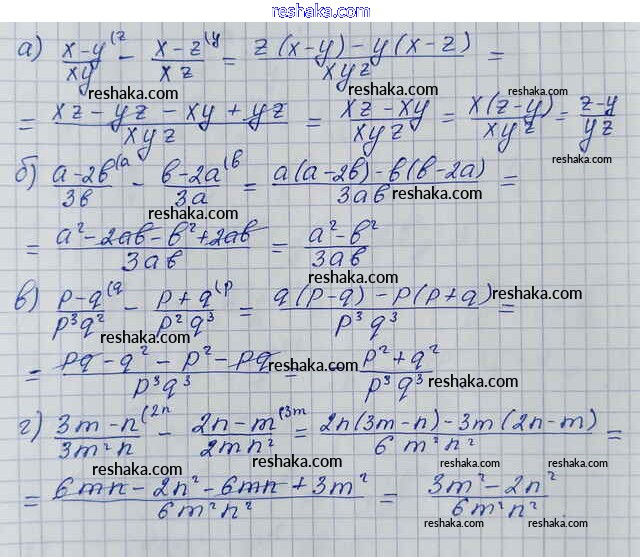 reshaka.com
а) (x-y)/(xy) ^(z - (x-z)/(xz) ^(y = (z(x-y)-y(x-z))/(xyz) =
reshaka.com reshaka.com
= (xz-yz-xy+yz)/(xyz) = (xz-xy)/(xyz) = (x(z-y))/(xyz) = (z-y)/(yz)
reshaka.com reshaka.com
б) (a-2b)/(3b) ^(a - (b-2a)/(3a) ^(b = (a(a-2b)-b(b-2a))/(3ab) =
reshaka.com reshaka.com
= (a²-2ab-b²+2ab)/(3ab) = (a²-b²)/(3ab)
reshaka.com
в) (p-q)/(p³q²) ^(q - (p+q)/(p²q³) ^(p = (q(p-q)-p(p+q))/(p³q³) =
reshaka.com reshaka.com
= (pq-q²-p²-pq)/(p³q³) = - (p²+q²)/(p³q³)
reshaka.com reshaka.com
г) (3m-n)/(3m²n) ^(2n - (2n-m)/(2mn²) ^(3m = (2n(3m-n)-3m(2n-m))/(6m²n²) =
reshaka.com reshaka.com
= (6mn-2n²-6mn+3m²)/(6m²n²) = (3m²-2n²)/(6m²n²).
reshaka.com reshaka.com
reshaka.com